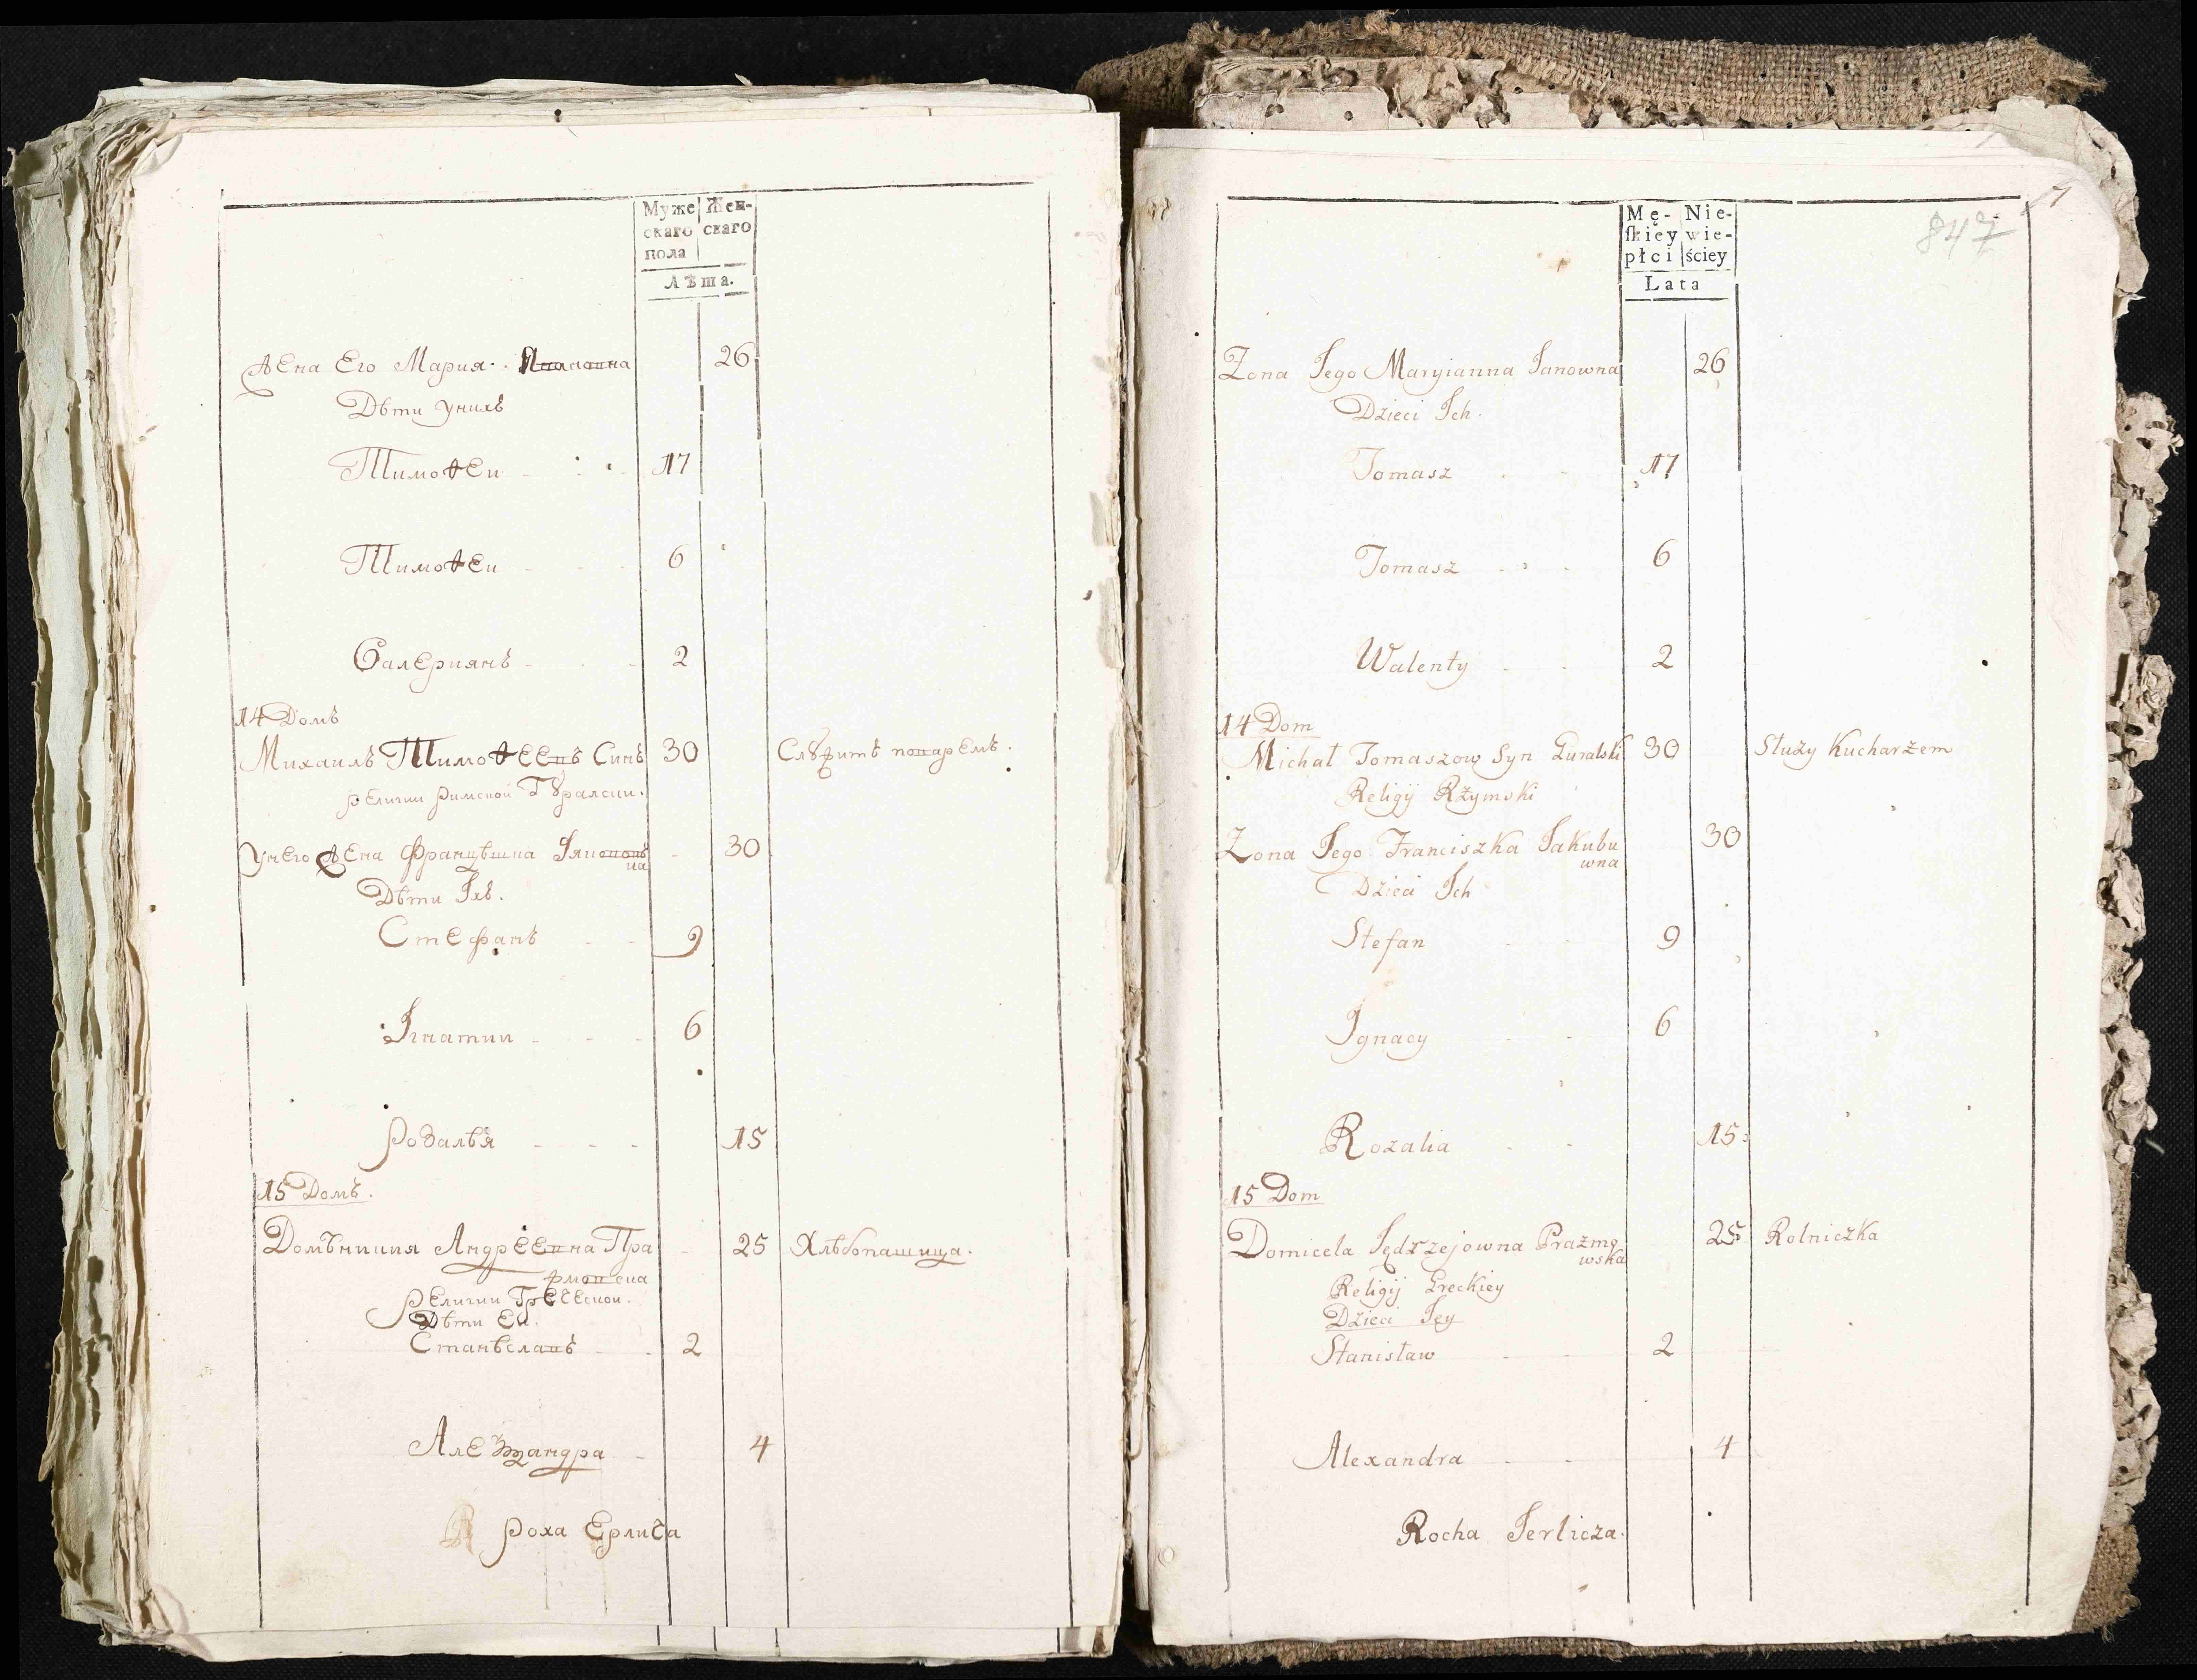 Муже
скаго
пола
Жен-
скаго
Лѣта.
Жена Его Мария 26
Дѣти унихъ
Тимоѳеи 17
Тимоѳеи 6
Валериянъ 2
14 Домъ
Михаилъ Тимоѳеевъ Синъ 30 Слꙋжитъ поваремъ.
религии римской Гꙋралски.
унего Жена Францѣшка Якововна 30
Дѣти Іхъ.
Стефанъ 9
Ігнатии 6
Розалѣя 15
15 Домъ.
Домѣникия Андреевна Пра 25 Хлѣбопашица.
жмовска
религии Греческой.
Дѣти Еи.
Станѣславъ 2
Александра 4
Роха Ерлича
847
Mę-
ſkiey
płci
Nie-
wie-
ściey
Lata
Zona Jego Maryianna Janowna 26
Dzieci Ich.
Tomasz 17
Tomasz 6
Walenty 2
14 Dom
Michał Tomaszow Syn Guralski 30 Służy Kucharzem
Religij Rżymski
Zona Jego Franciszka Jakubu 30
wna
Dzieci Ich
Stefan 9
Ignacy 6
Rozalia 15
15 Dom
Domicela Jędrzejowna Prazmo 25 Rolniczka
wska
Religij Greckiey
Dzieci Jey
Stanisław 2
Alexandra 4
Rocha Jerlicza.